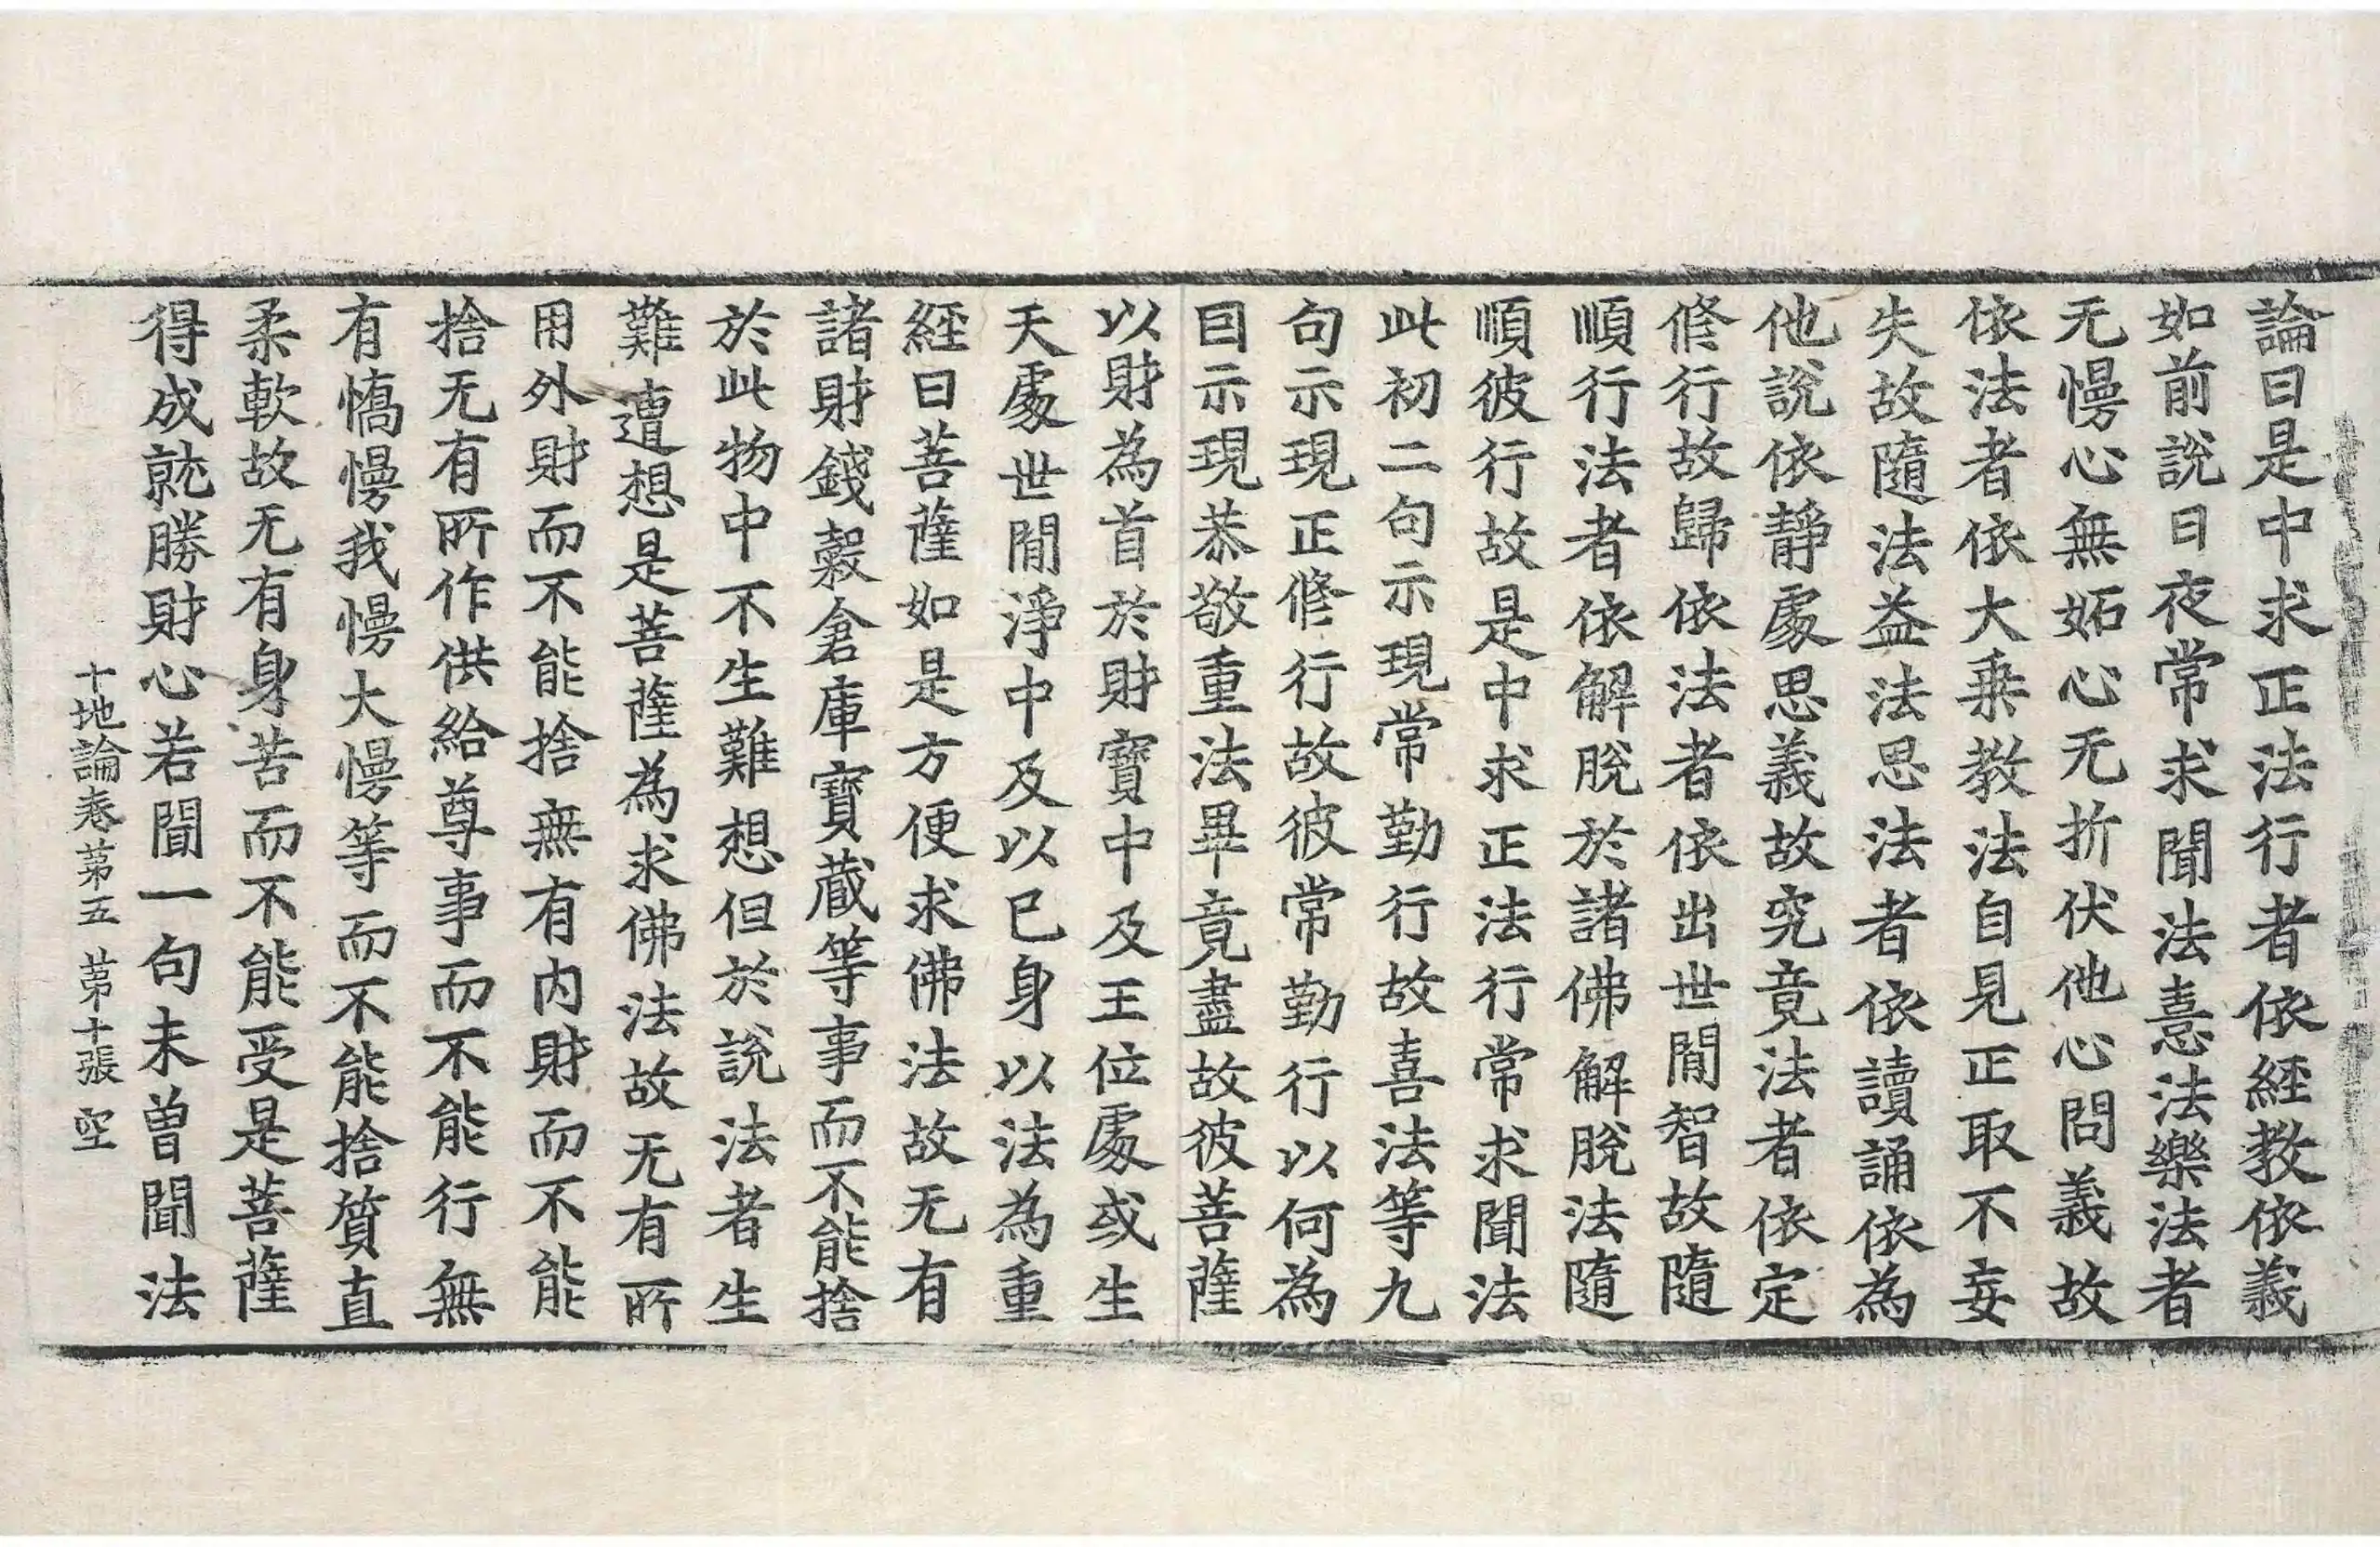 論曰是中求正法行者依經教依義
如前說日夜常求聞法憙法樂法者
无慢心無妬心无折伏他心問義故
依法者依大乗教法自見正取不妄
失故隨法益法思法者依讀誦依為
他說依靜處思義故究竟法者依定
修行故歸依法者依出世間智故隨
順行法者依解脫於諸佛解脫法隨
順彼行故是中求正法行常求聞法
此初二句示現常勤行故喜法等九
句示現正修行故彼常勤行以何為
因示現恭敬重法畢竟盡故彼菩薩
以財為首於財寶中及王位處或生
天處世間淨中及以已身以法為重
經曰菩薩如是方便求佛法故无有
諸財錢穀倉庫寶藏等事而不能捨
於此物中不生難想但於說法者生
難遭想是菩薩為求佛法故无有所
用外財而不能捨無有内財而不能
捨无有所作供給尊事而不能行無
有憍慢我慢大慢等而不能捨質直
柔軟故无有身苦而不能受是菩薩
得成就勝財心若聞一句未曾聞法
十地論卷第五 第十張 空